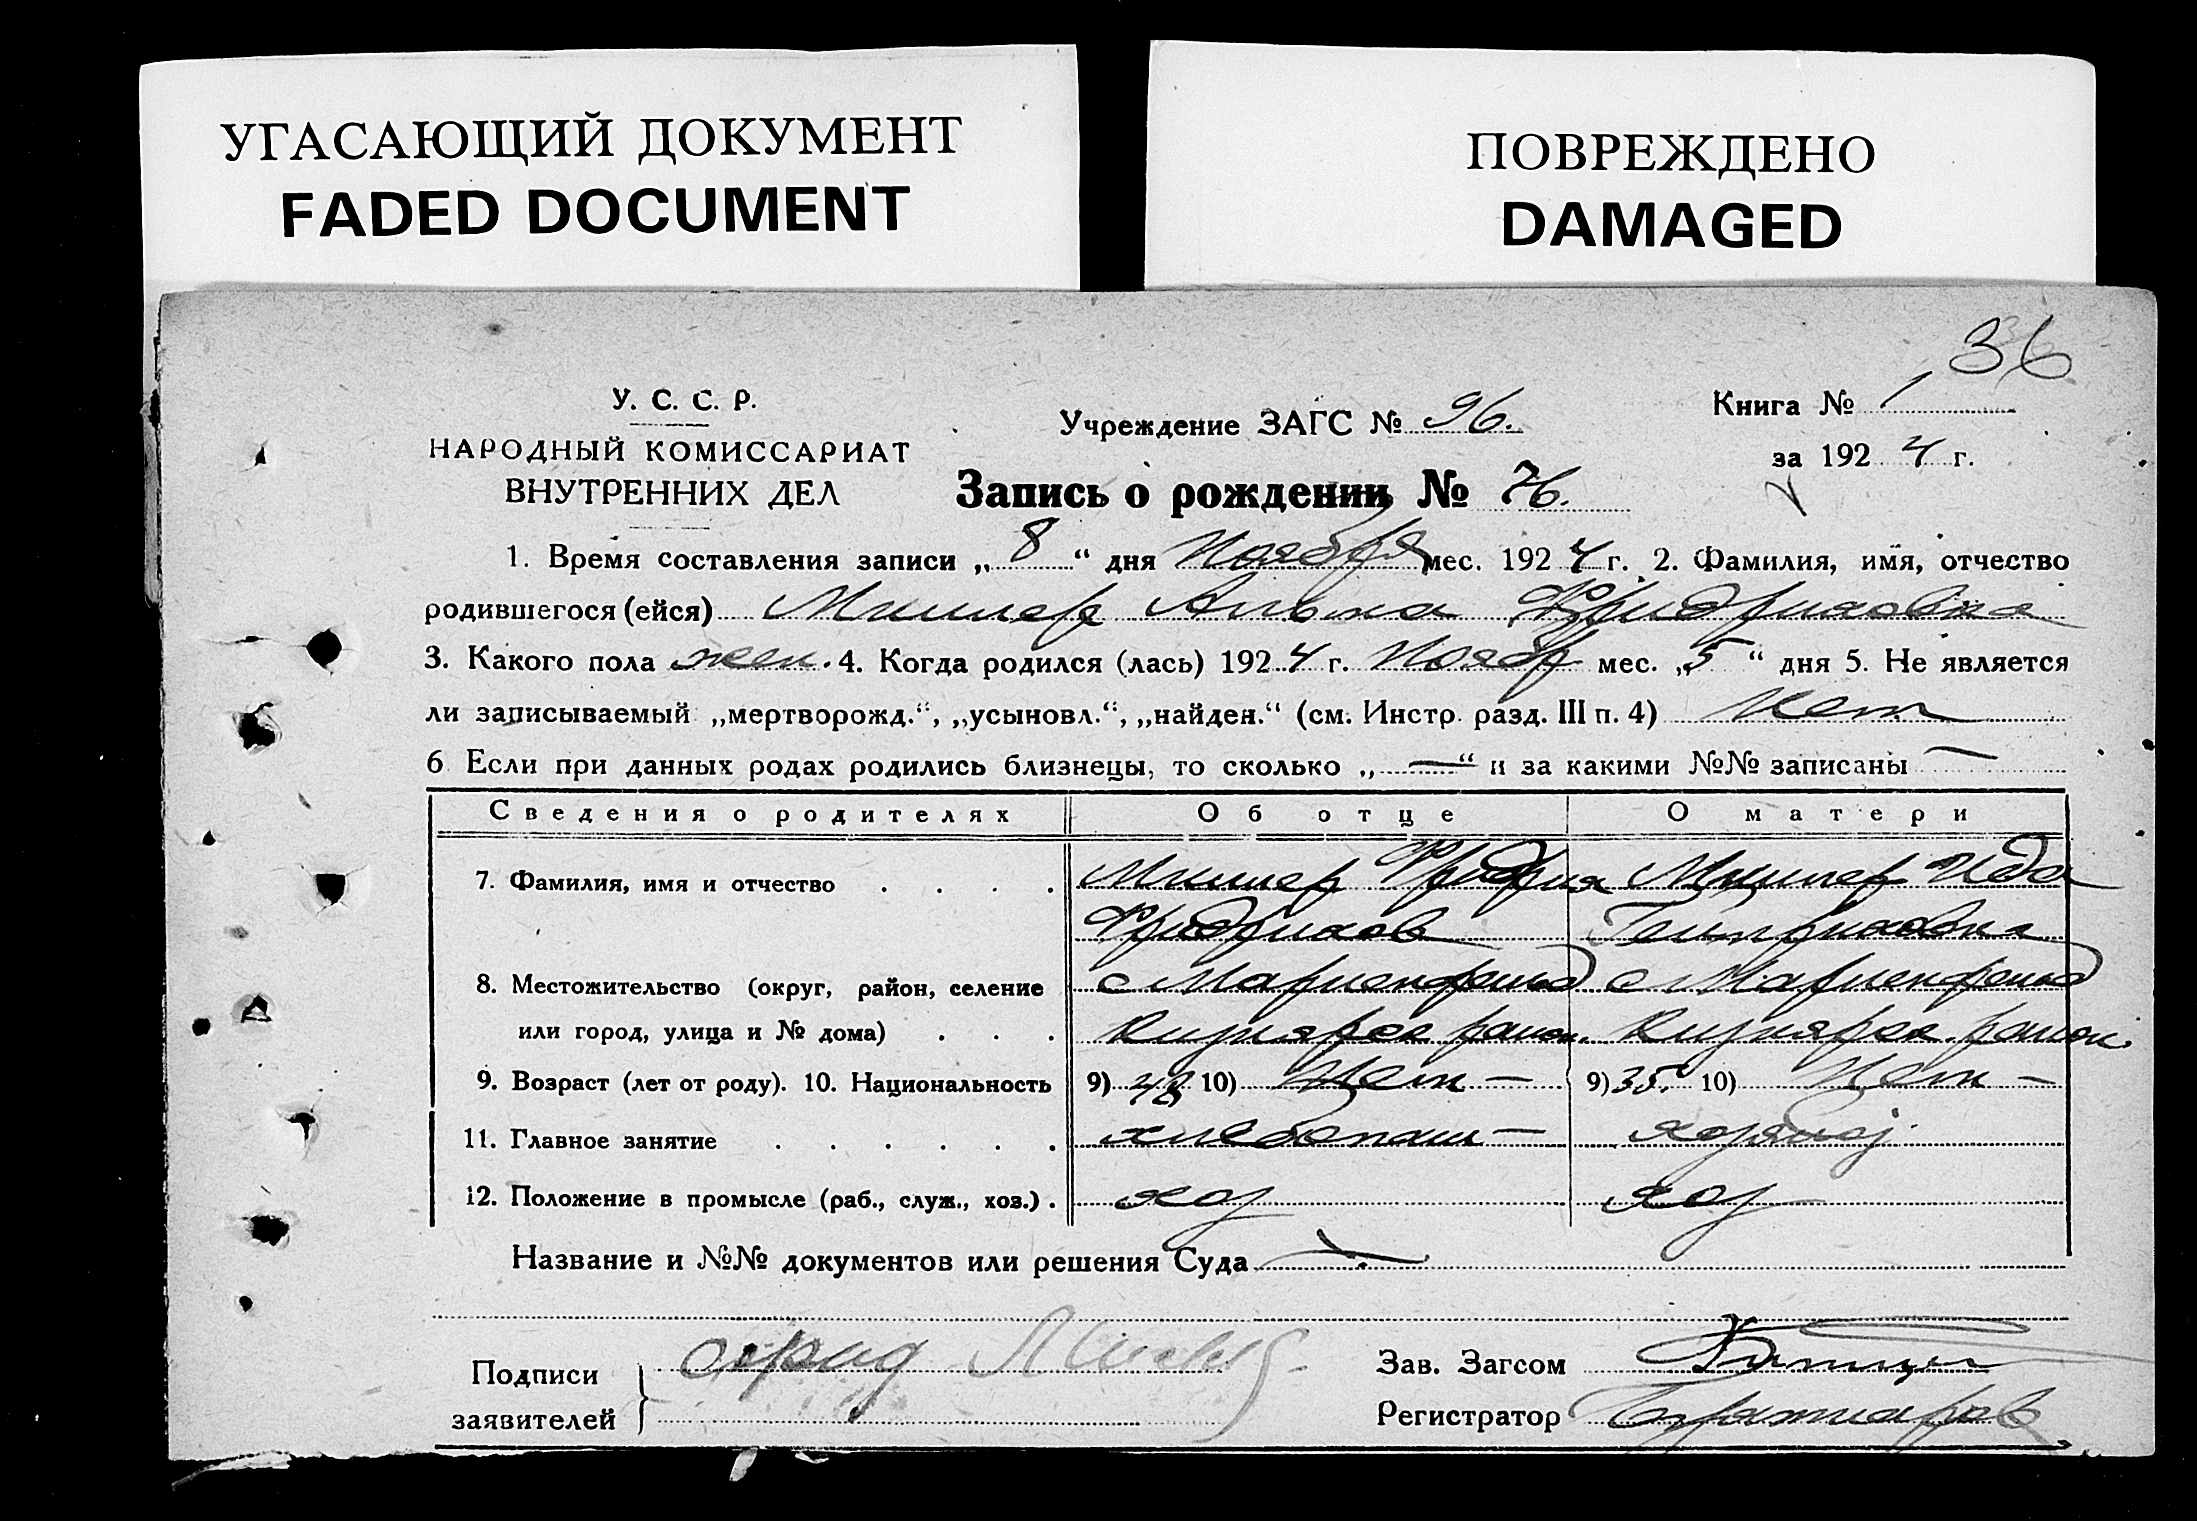 УГАСАЮЩИЙ ДОКУМЕНТ
FADED DOCUMENT
ПОВРЕЖДЕНО
DAMAGED
36
У. С. С. Р.
НАРОДНЫЙ КОМИССАРИАТ
ВНУТРЕННИХ ДЕЛ
Учреждение ЗАГС № 96.
Книга № 1
за 1924 г.
Запись о рождении № 76.
1. Время составления записи „8“ дня Ноября мес. 1924 г. 2. Фамилия, имя, отчество
родившегося (ейся) Миллер Альма Фридриховна
3. Какого пола жен. 4. Когда родился (лась) 1924 г. Ноябр мес. „5“ дня 5. Не является
ли записываемый „мертворожд.“, „усыновл.“, „найден.“ (см. Инстр. разд. III п. 4) Нет
6 Если при данных родах родились близнецы, то сколько „—“ и за какими №№ записаны —
Сведения о родителях Об отце О матери
7. Фамилия, имя и отчество . . . . Миллер Фридрих Миллер Ида
Фридрихов Генриховна
8. Местожительство (округ, район, селение с Мариенфельд с Мариенфельд
или город, улица и № дома) . . . район. район.
9. Возраст (лет от роду). 10. Национальность 9) 48 10) Нем — 9) 35. 10) Нем —
11. Главное занятие . . . . . . хлебопаш —
12. Положение в промысле (раб., служ., хоз.) . хоз хоз
Название и №№ документов или решения Суда —
Подписи
заявителей
Зав. Загсом
Регистратор